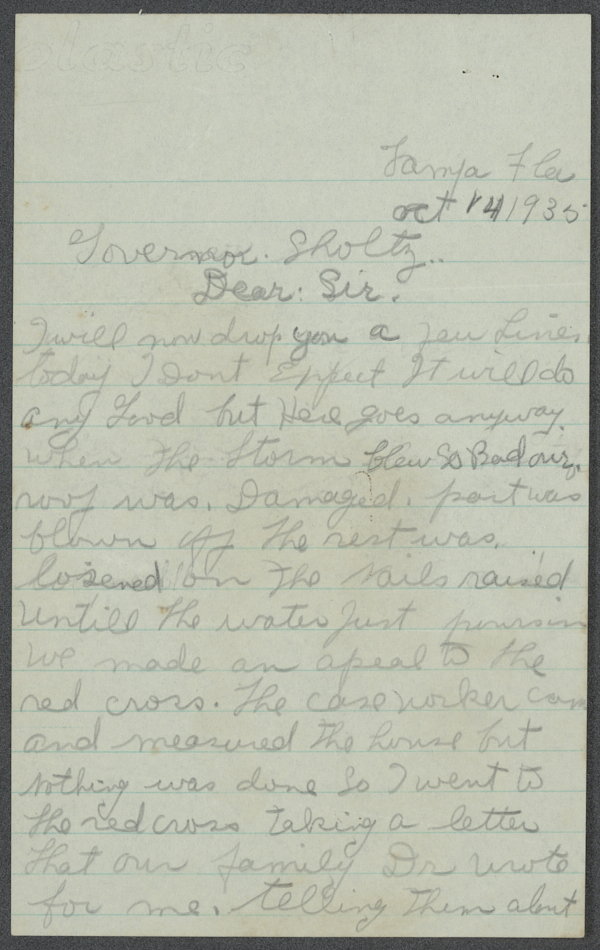 Tampa Fla
oct 14 1935
Governor. Sholtz..
Dear: Sir.
I will now drop you a few Lines
today I Dont Exspect It will do
any Good but Here goes anyway.
when The Storm blew So Bad our
roof was. Damaged. part was
blown off The rest was.
loosened on The nails raised
untill The water Just poursin
We made an apeal to The
red cross. The case worker cam
and measured The house but
nothing was done So I went to
The red cross Taking a letter
That our family Dr wrote
for me. telling Them about